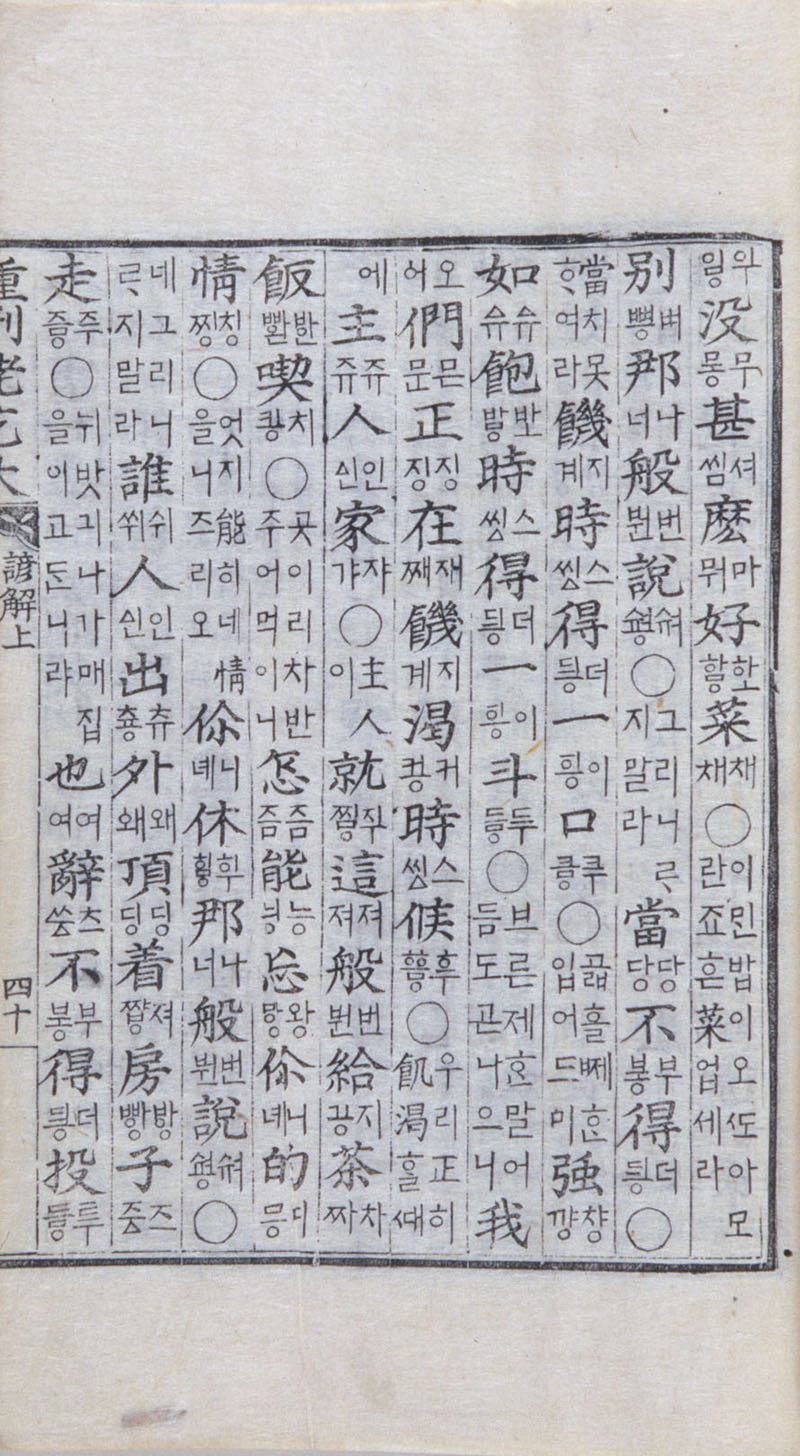 没몽무甚씸셔麽뭐마好ᄒᅶ菜채채○이민밥이오ᄯᅩ아모란죠흔菜업세라
别벼那너나般붠번說숴○그리니ᄅᆞ지말라當당당不봉부得딍더○
當치못ᄒᆞ여라饑계지時씽스得딍더一힝이口큼쿠○곫흘ᄣᅦ한입어드미强꺙챵
如슈슈飽ᄇᅶ時씽스得딍더一힝이斗둫두○브른제ᄒᆞᆫ말어듬도곤나으니我
어오們문믄正징징在째재饑계지渴컹커時씽스候ᅘᅮᇢ후○우리正히飢渴ᄒᆞᆯᄯᅢ
에主쥬쥬人신인家갸쟈○主人이就찡直這져져般붠번給깅지茶짜차
飯빤반喫킹치○곳이리차반주어먹이니怎즘즘能닝능忘왕왕你녜니的딍디
情찡칭○엇지能히네情을니즈리오你녜니休ᄒᆛ那너나般붠번說숴○
네그리니ᄅᆞ지말라誰쒸쉬人신인出츙츄外왜왜頂딩딩着쨯져房빵방子증즈
走즇주○뉘밧긔나가매집을이고ᄃᆞᆫ니랴也여여辭쓩츠不봉부得딍더投틓투
重刊老乞大諺解上 四十